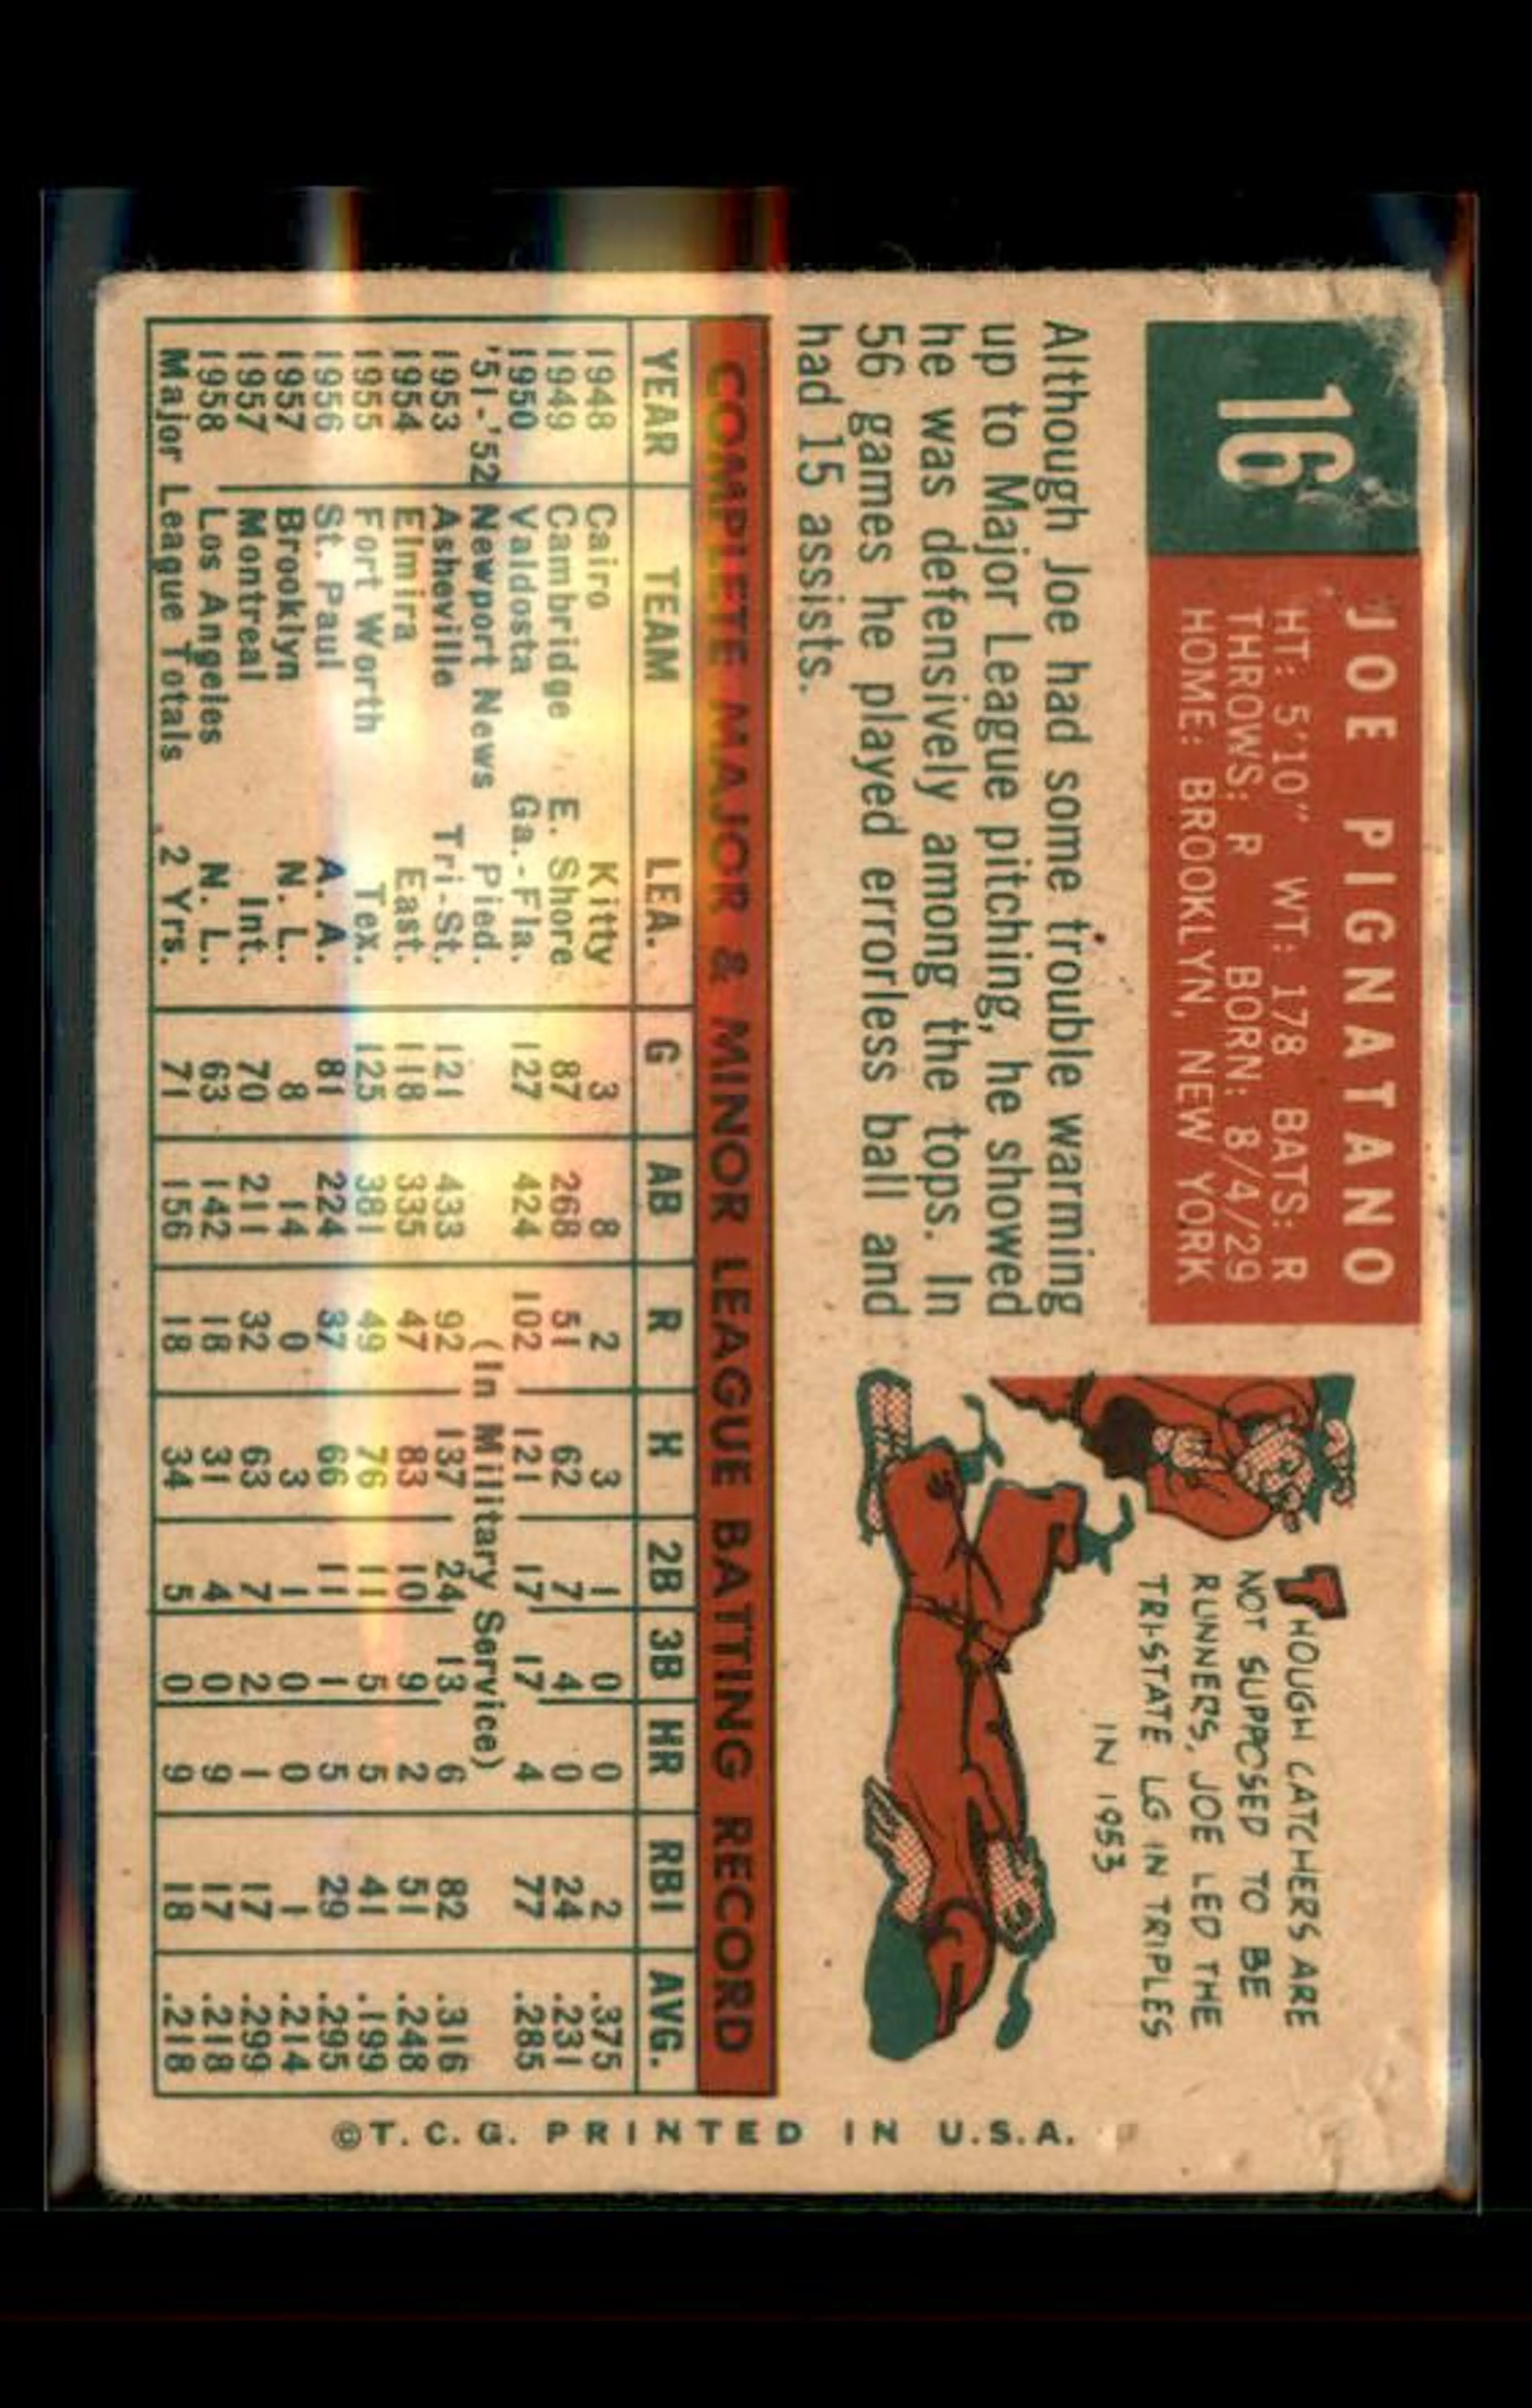 16
JOE PIGNATANO
HT: 5'10" WT: 178 BATS: R
THROWS: R BORN: 8/4/29
HOME: BROOKLYN, NEW YORK
Although Joe had some trouble warming
up to Major League pitching, he showed
he was defensively among the tops. In
56 games he played errorless ball and
had 15 assists.
THOUGH CATCHERS ARE
NOT SUPPOSED TO BE
RUNNERS, JOE LED THE
TRI-STATE LG IN TRIPLES
IN 1953
COMPLETE MAJOR & MINOR LEAGUE BATTING RECORD
YEAR TEAM LEA. G AB R H 2B 3B HR RBI AVG.
1948 Cairo Kitty 3 8 2 3 1 0 0 2 .375
1949 Cambridge E. Shore 87 268 51 62 7 4 0 24 .231
1950 Valdosta Ga.-Fla. 127 424 102 121 17 17 4 77 .285
'51-'52 Newport News Pied. (In Military Service)
1953 Asheville Tri-St. 121 433 92 137 24 13 6 82 .316
1954 Elmira East. 118 335 47 83 10 9 2 51 .248
1955 Fort Worth Tex. 125 381 49 76 11 5 5 41 .199
1956 St. Paul A. A. 81 224 37 66 11 1 5 29 .295
1957 Brooklyn N. L. 8 14 0 3 1 0 0 1 .214
1957 Montreal Int. 70 211 32 63 7 2 1 17 .299
1958 Los Angeles N. L. 63 142 18 31 4 0 9 17 .218
Major League Totals 2 Yrs. 71 156 18 34 5 0 9 18 .218
©T.C.G. PRINTED IN U.S.A.